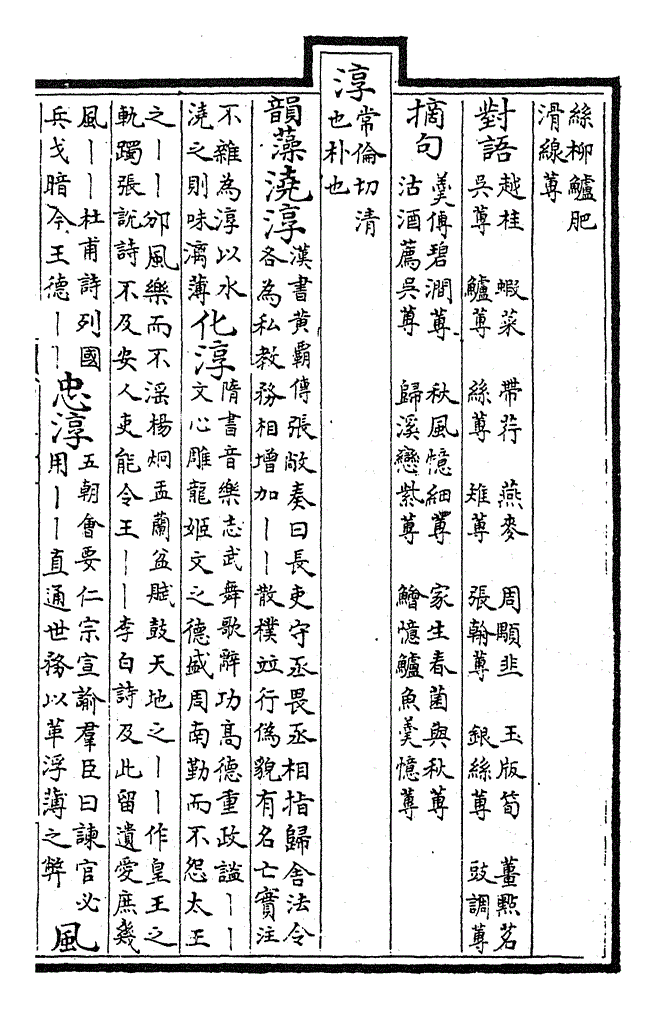 絲柳鱸肥
滑線蓴
對語
越桂　蝦菜　帶荇　燕麥　周顒韭　玉版筍　薑點茗
吳蓴　鱸蓴　絲蓴　雉蓴　張翰蓴　銀絲蓴　豉調蓴
摘句
羹傳碧澗蓴　秋風憶細蓴　家生春菌與秋蓴
沽酒薦吳蓴　歸溪戀紫蓴　鱠憶鱸魚羹憶蓴
淳
常倫切清
也朴也
韻藻 澆淳
漢書黃霸傳張敞奏曰長吏守丞畏丞相指歸舍法令
各為私教務相增加丨丨散樸竝行偽貌有名亡實注
不雜為淳以水
澆之則味漓薄
化淳
隋書音樂志武舞歌辭功高德重政謐丨丨
文心雕龍姬文之德盛周南勤而不怨太王
之丨丨邠風樂而不淫楊炯盂蘭盆賦鼓天地之丨丨作皇王之
軌躅張說詩不及安人吏能令王丨丨李白詩及此留遺愛庶幾
風丨丨杜甫詩列國
兵戈暗今王德丨丨
忠淳
五朝會要仁宗宣諭羣臣曰諫官必
用丨丨直通世務以革浮薄之弊
風